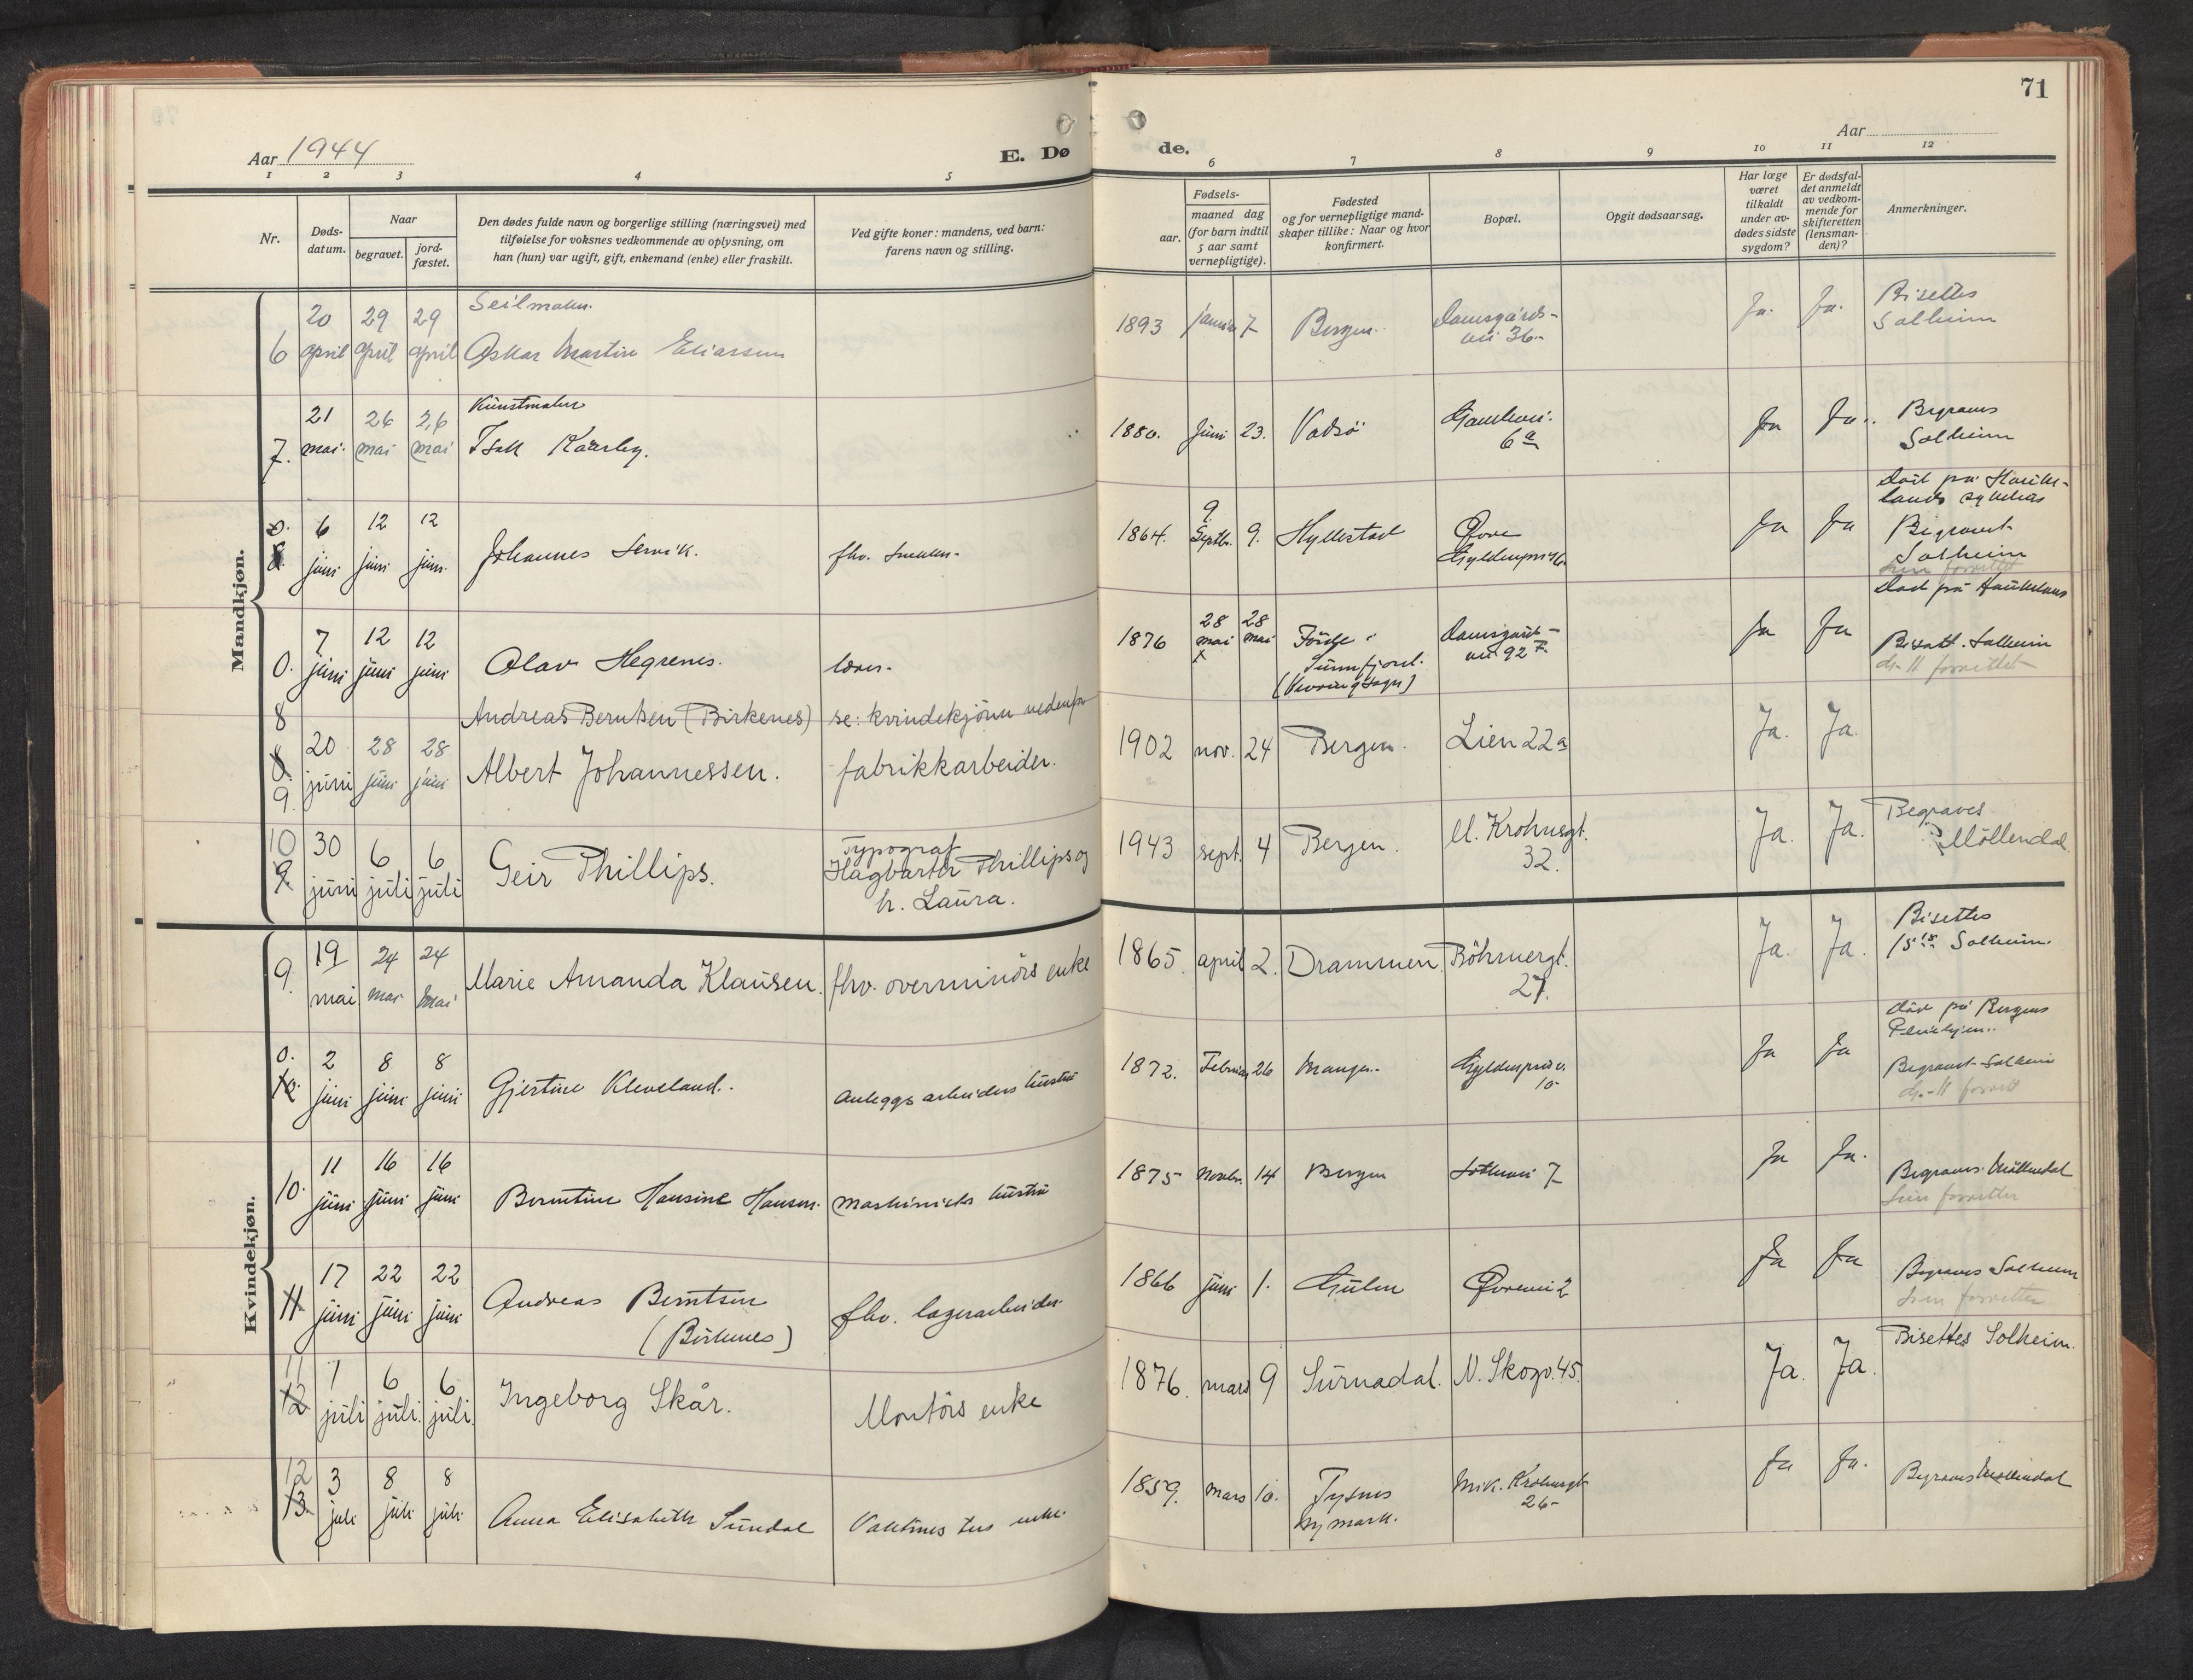 71
Aar 1944
E. Dø
de.
Aar
1 2 3 4 5
6 7 8 9 10 11 12
Nr.
Døds-
datum.
Naar
begravet.
jord-
fæstet.
Den dødes fulde navn og borgerlige stilling (næringsvei) med
tilføielse for voksnes vedkommende av oplysning, om
han (hun) var ugift, gift, enkemand (enke) eller fraskilt.
Ved gifte koner: mandens, ved barn:
farens navn og stilling.
Fødsels-
aar.
maaned dag
(for barn indtil
5 aar samt
vernepligtige).
Fødested
og for vernepligtige mand-
skaper tillike: Naar og hvor
konfirmert.
Bopæl.
Opgit dødsaarsag.
Har læge
været
tilkaldt
under av-
dødes sidste
sygdom?
Er dødsfal-
det anmeldt
av vedkom-
mende for
skifteretten
(lensman-
den)?
Anmerkninger.
Mandkjøn.
Seilmaker.
6 20 april 29 april 29 april Oskar Martin Eliassen
1893 januar 7 Bergen. Damsgårds-
vei 36.
Ja. Ja. Bisettes
Solheim
Kunstmaler
7. 21 mai. 26 mai 26 mai Isak Kaarby.
1880. Juni 23. Vadsö
6a
Ja Ja. Begraves
Solheim
0. 8. 6 juni 12 juni 12 juni Johannes Servik. fhv.
1864. 9. Septbr. 9. Hyllestad Øvre
Ja Ja Död på Hauke-
lands sykehus
Begravet
Solheim
forrettet
0. 7 juni 12 juni 12 juni Olav Hegrenes. lærer.
1876 28 mai x 28 mai Förde i
Sunnfjord.
Damsgårds-
vei 92
Ja Ja Död på Haukeland
Bisatt. Solheim
forrettet
8 Andreas Berntsen (Birkenes) se: kvindekjönn nedenfor
8. 9. 20 juni 28 juni 28 juni Albert Johannessen. fabrikkarbeider.
1902 nov. 24 Bergen. Lien 22a Ja. Ja.
10 9 30 juni 6 juli 6 juli Geir Phillips. Typograf
Hagbarth Phillips og
h. Laura.
1943 sept. 4 Bergen. M. Krohnsgt.
32.
Ja. Ja. Begraves
Möllendal
Kvindekjøn.
9. 19 mai 24 mai 24 mai Marie Amanda Klausen. fhv. overminörs enke
1865. april 2. Drammen. Böhmergt.
27.
Ja. Ja. Bisettes
Solheim.
0. 10. 2 juni 8 juni 8 juni Gjertine Kleveland. Anleggsarbeiders hustru
1872. Februar 26 Manger. Gyldenprisv.
10
Ja Ja död på Bergens
Pleiehjem.
Begravet Solheim
10. 11 juni 16 juni 16 juni Berntine Hansine Hansen. Maskinists hustru
1875 Novbr. 14 Bergen 7
Ja Ja. Begraves Möllendal
forretter
11 17 juni 22 juni 22 juni Andreas Berntsen
(Birkenes)
fhv. lagerarbeider
1866 juni 1. Gulen 2
Ja Ja Begraves Solheim
forretter
11 12 1 juli 6 juli. 6 juli. Ingeborg Skår. Montörs enke
1876. mars 9 Surnadal. N. Skogv. 45. Ja. Ja. Bisettes Solheim.
12 13. 3 juli 8 juli 8 juli Anna Elisabeth Sundal enke.
1859. Mars 10. Tysnes
Mik. Krohnsgt
26
Ja Ja. Begraves Möllendal